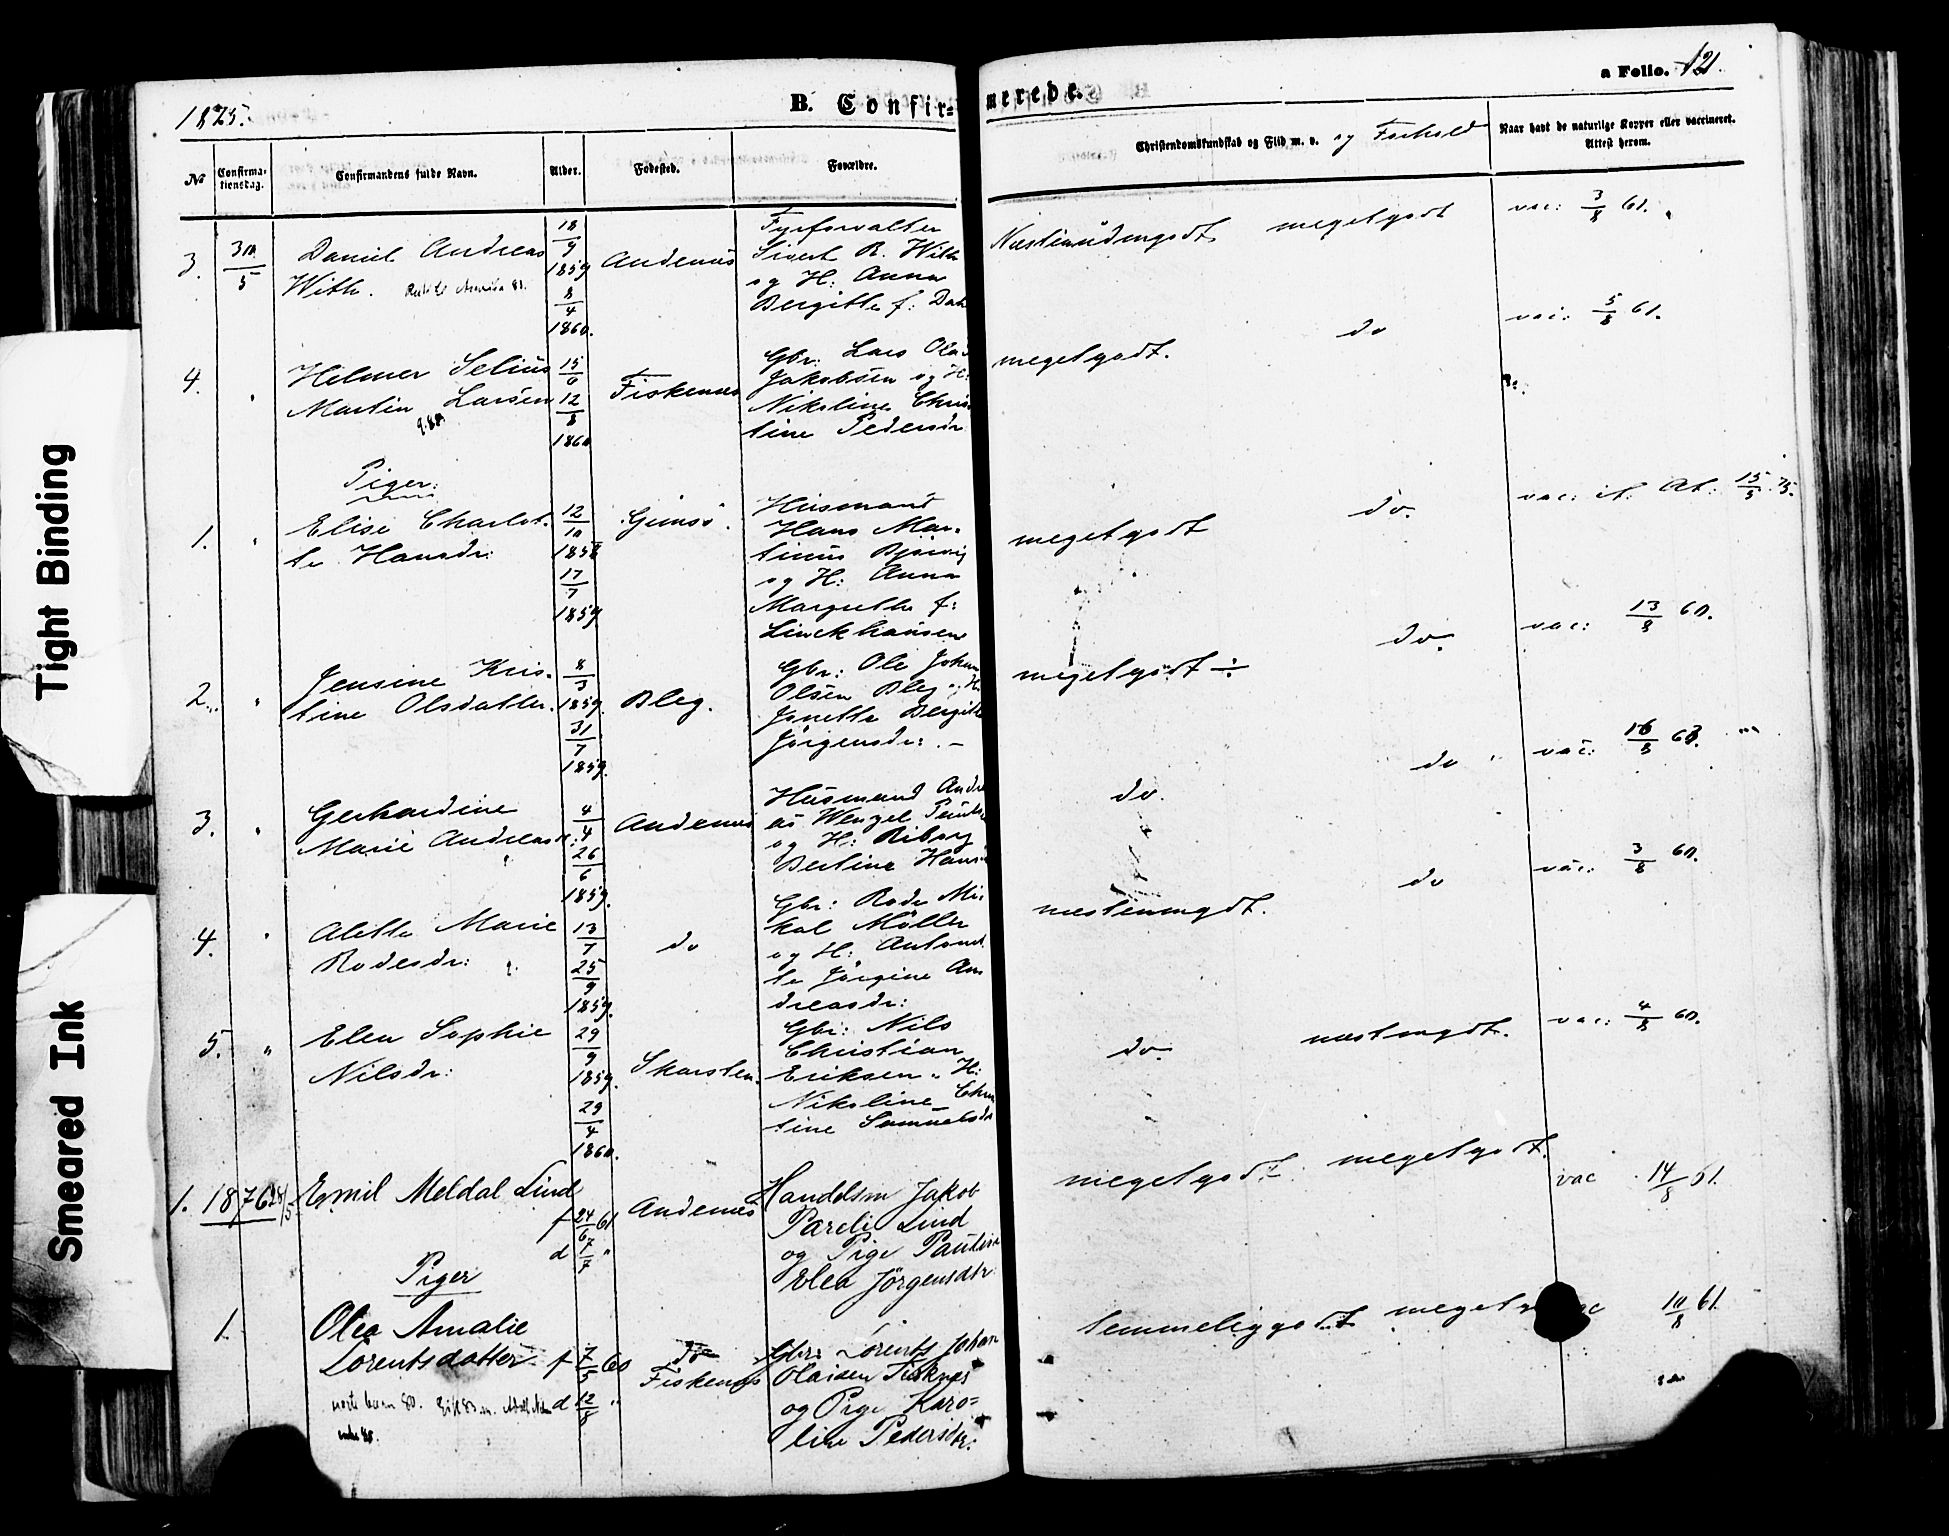 1875.
B. Confir-
merede.
a Folio. 121.
No
Confirma-
tionsdag.
Confirmandens fulde Navn.
Alder.
Fødested.
Forældre.
Christendomskundskab og Flid m. v. og Forhold
Naar havt de naturlige Kopper eller vaccineret.
Attest herom.
3.
30/5
Daniel Andreas
With.
18/9
1859
8/4
1860.
Andenæs
Fyrforvalter
Sivert B. With
og H: Anna
Bergitte f:
meget godt
vac: 3/8 61.
4.
"
Helmer Selius
Martin Larsen
15/6
12/8
1860
Fiskenæs
Gbr: Lars Olai
Jakobsen og H:
Nikoline Chris
tine Pedersdr
meget godt.
do
vac: 5/8 61.
Piger:
1.
"
Elise Charlot-
te Hansdr:
12/10
1858
17/7
1859
Gimsö.
Husmand
Hans Mar-
tinus
og H: Anna
Margrethe f:
Linckhausen
meget godt
do.
vac: At: 15/5 75.
2.
"
Jensine Kris-
tine Olsdatter.
8/3
1859.
31/7
1859.
Bleg.
Gbr: Ole Johan
Olsen Bleg og H:
Janette Bergitte
Jörgensdr: -
meget godt
do.
vac: 13/8 60.
3.
"
Gerhardine
Marie Andreasdr:
4/4
26/6
1859.
Andenæs
Husmand Andre
as Wengel
og H: Riborg
Bertine
do.
do
vac: 16/8
4.
"
Alette Marie
Rodesdr:
13/7
25/9
1859.
do
Gbr: Rode Mi-
kal Möller
og H: Antonet
te Jörgine An
dreasdr:
do
vac: 3/8 60.
5.
"
Elen Sophie
Nilsdr:
29/9
1859.
29/4
1860.
Skarsten.
Gbr: Nils
Christian
Eriksen H:
Nikoline Chris
tine Samuelsdr
do.
vac: 4/8 60.
1.
1876
Emil Meldal Lind
f 24/6 61
d 7/7 "
Andenæs
Handelsm Jakob
Pareli Lind
og Pige Pauline
Elea Jörgensdtr
meget godt
meget godt.
vac 14/8 61.
Piger
1.
Olea Amalie
Lorentsdatter
f 7/5 60
d 12/8 "
do
Fiskenæs
Gbr: Lorents Johan
Olaisen Fisknæs
og Pige Karo=
line Pedersdtr:
temmelig godt
meget
10/8 61.
Tight Binding
Smeared Ink